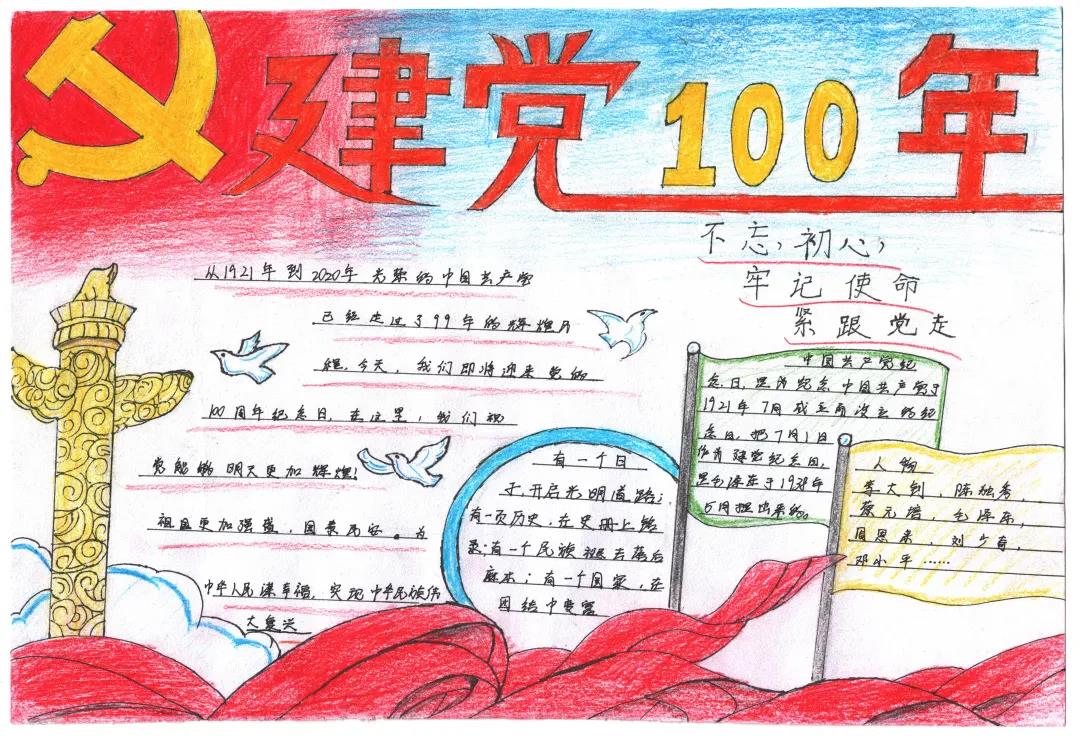 建党100年
不忘初心,
牢记使命
紧跟党走
从1921年到2020年光荣的中国共产党
已经走过了99年的辉煌历
程,今天,我们即将迎来党的
100周年纪念日,在这里,我们祝
党能够明天更加辉煌!
祖国更加强盛,国泰民安。为
中华人民谋幸福,实现中华民族伟
大复兴
有一个日
子,开启光明道路;
有一页历史,在史册上铭
录;有一个民族褪去落后
麻木;有一个国家,在
团结中
中国共产党纪
念日,是为纪念中国共产党于
1921年7月成立而设立的纪
念日,把7月1日
作为建党纪念日,
是毛泽东于1938年
5月提出来的。
人物
李大钊,陈独秀,
蔡元培,毛泽东,
周恩来,刘少奇,
邓小平……